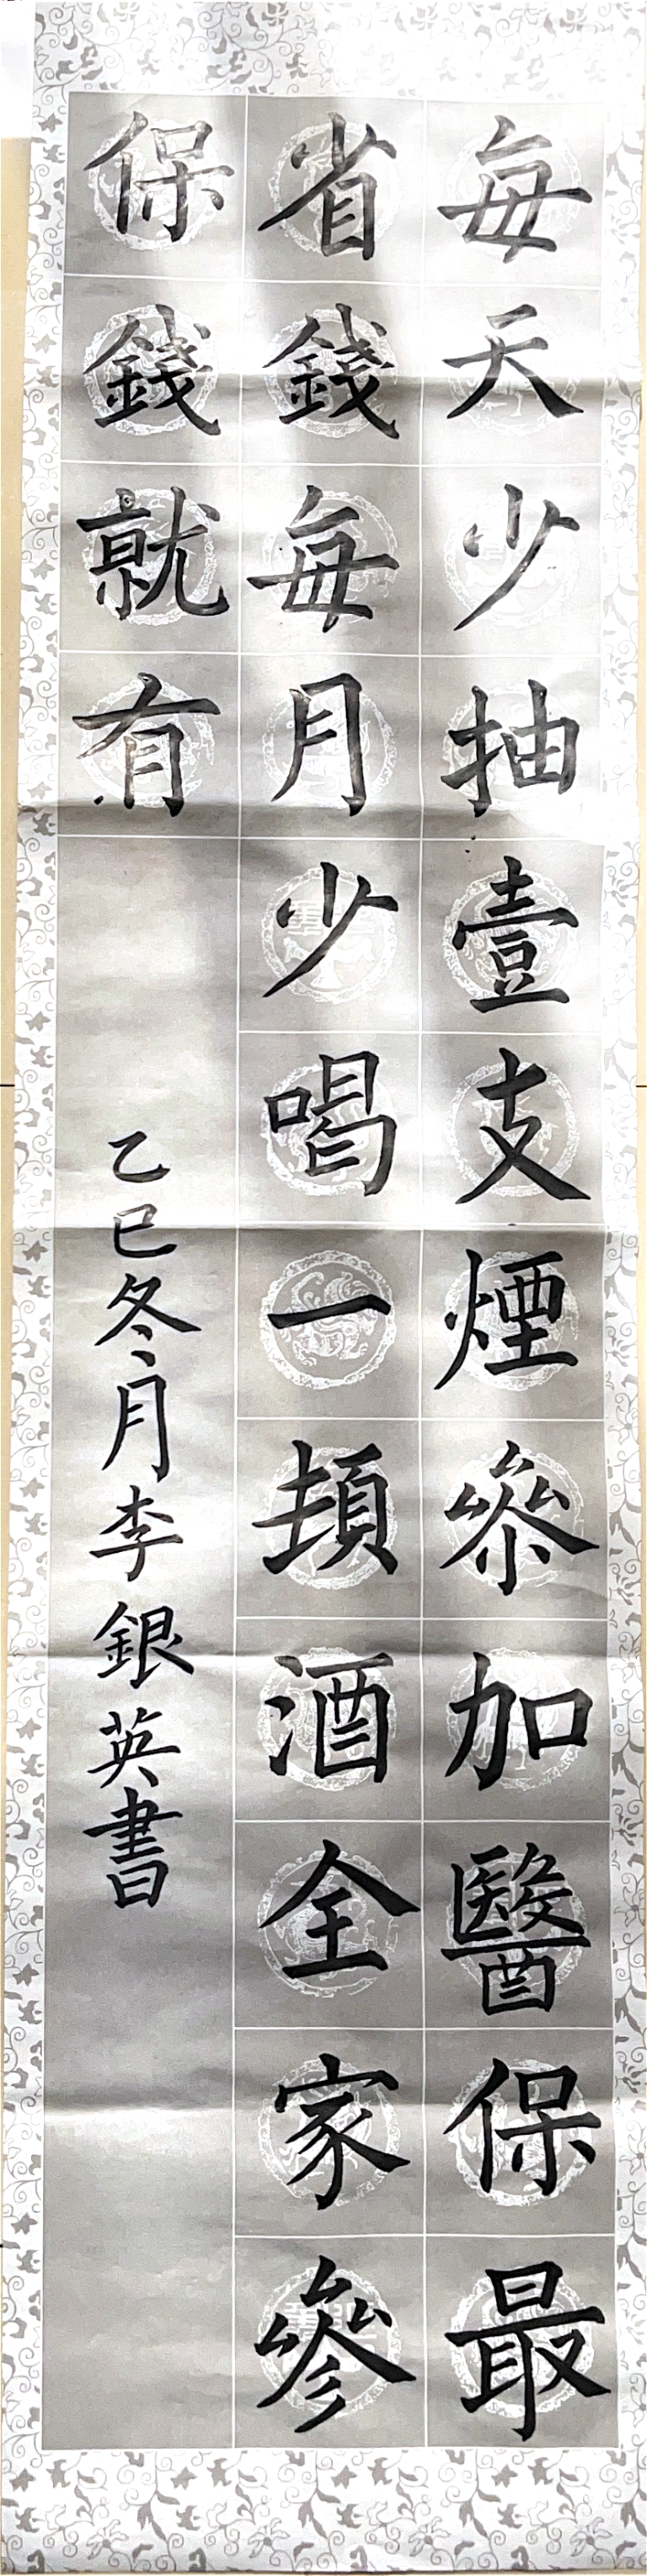 每天少抽壹支煙叅加醫保最
省錢每月少喝一頓酒全家參
保錢就有
乙巳冬月李銀英書